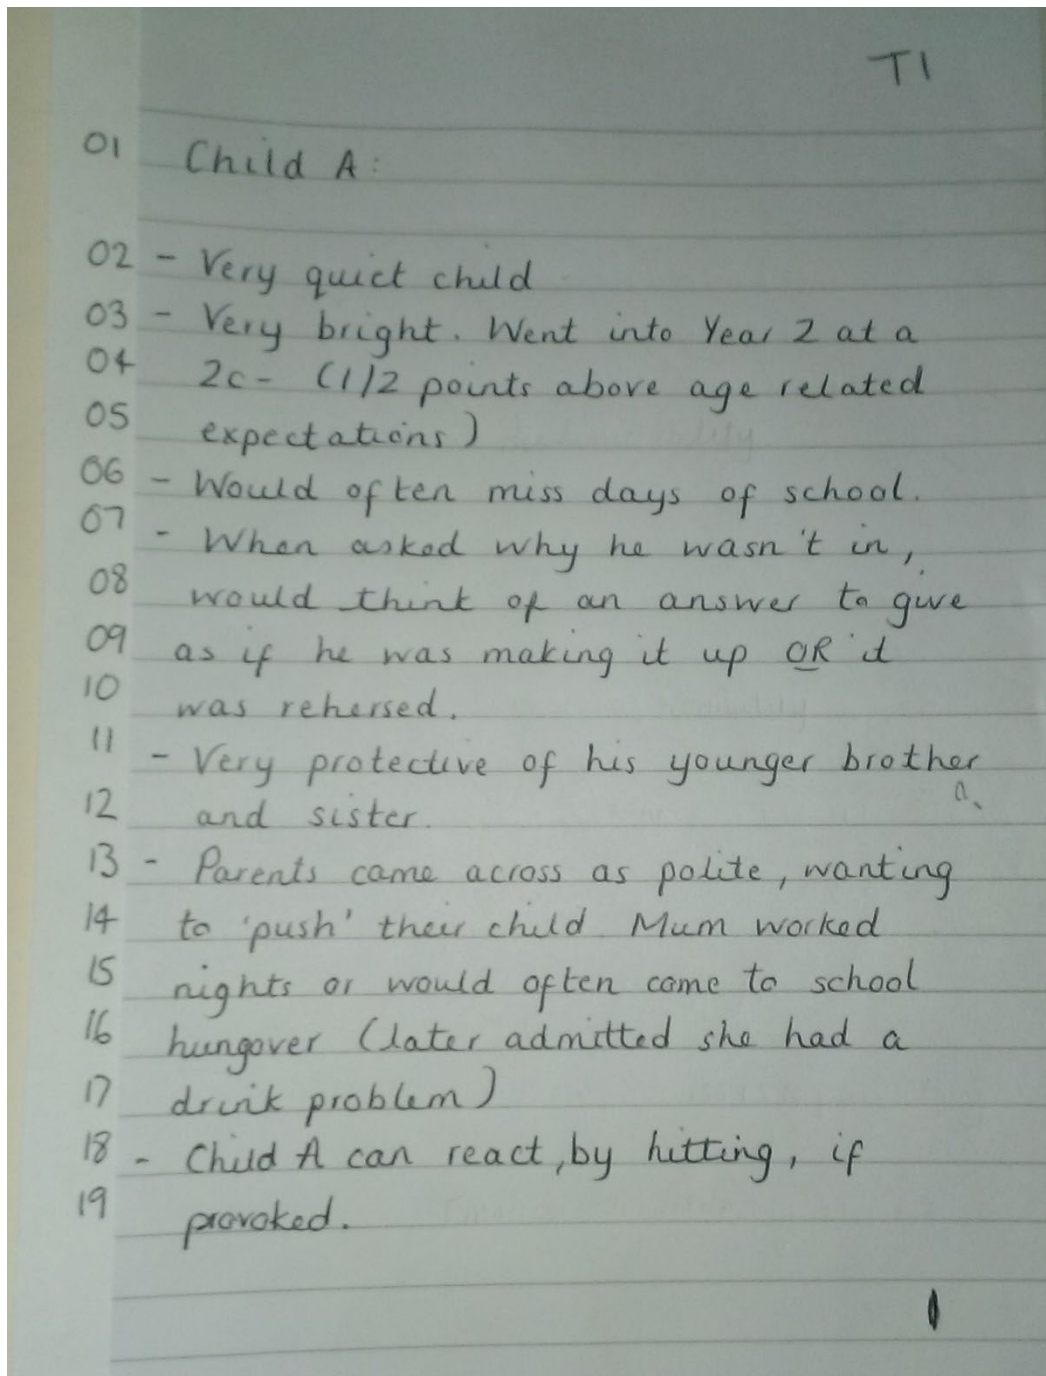 T1
01 Child A:
02 - Very quiet child
03 - Very bright. Went into Year 2 at a
04 2c - (1/2 points above age related
05 expectations)
06 - Would often miss days of school.
07 - When asked why he wasn't in,
08 would think of an answer to give
09 as if he was making it up OR it
10 was rehersed.
11 - Very protective of his younger brother
12 and sister.
13 - Parents came across as polite, wanting
14 to 'push' their child Mum worked
15 nights or would often come to school
16 hungover (later admitted she had a
17 drink problem)
18 - Child A can react, by hitting, if
19 provoked.